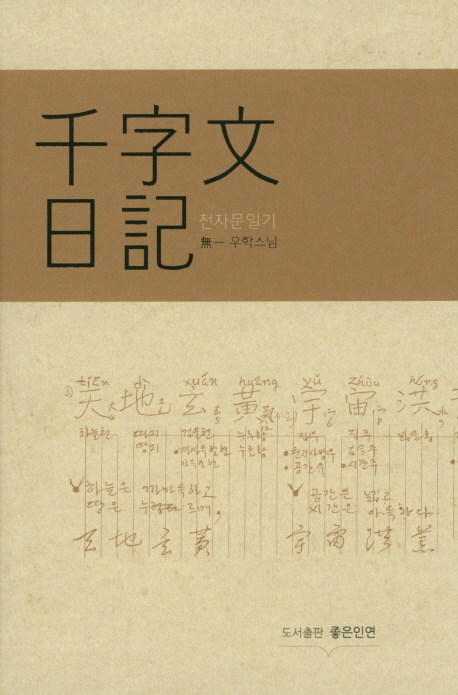 千字文
日記
천자문일기
無一 우학스님
tiān dì xuán huáng yǔ zhòu hóng
天 地 玄 黃 宇 宙 洪
하늘천 땅지 검을현 누루황 집우 집주 넓을홍
땅지 누른황
하늘은 까마득하고
땅은 누르며,
공간은 넓고
시간은 아득하다
天 地 玄 黃 宇 宙 洪 荒
도서출판 좋은인연